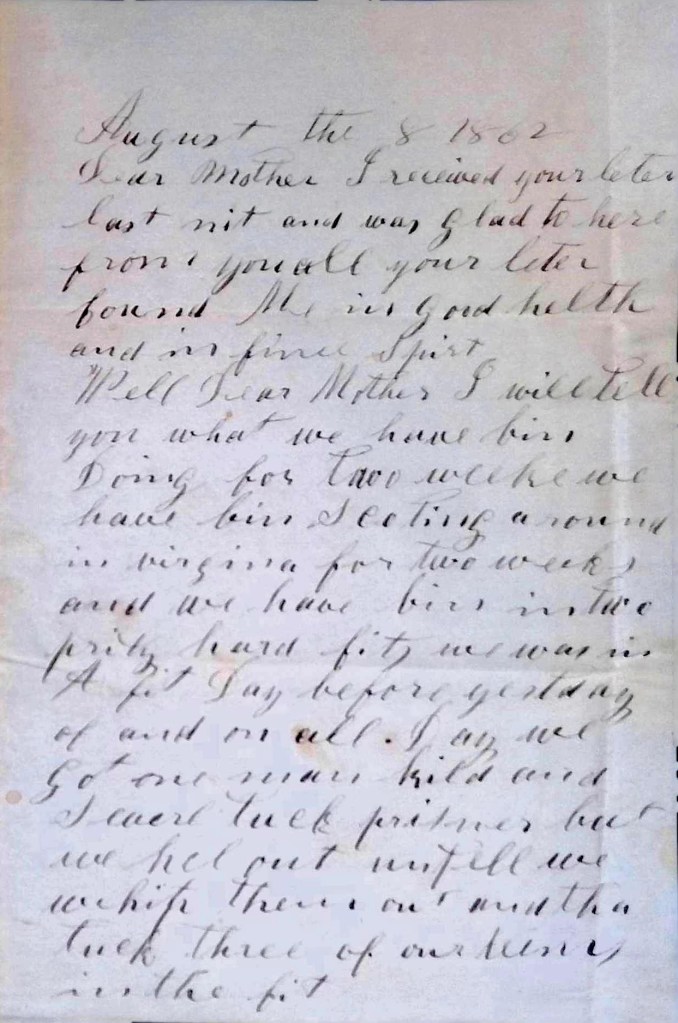 August the 8 1862
Dear Mother I received your leter
last nit and was glad to here
from you all your leter
found Me in good helth
and in fine Spirt
Well Dear Mother I will tell
you what we have bin
Doing for two weeks we
have bin Scoting around
in virginia for two weeks
and we have bin in two
prity hard fits we was in
A fit Day before yestday
of and on all Day we
got one man kild and
Sevrel tuck prisner but
we hel out untell we
whip them out and tha
tuck three of our
in the fit